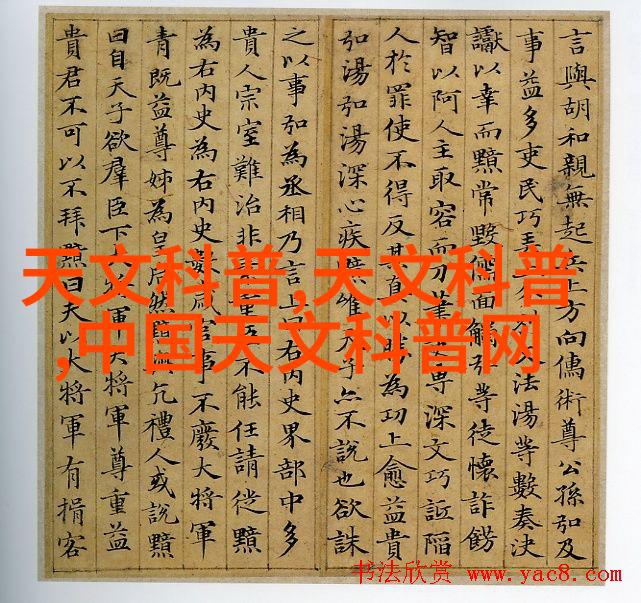 言與胡和親無起兵上方向儒術尊公孫弘及
事益多吏民巧法湯等數奏決
讞以幸而黯常毀儒面觸弘等徒懷詐飾
智以阿人主取容而刀筆吏專深文巧詆陷
人於罪使不得反其真以勝為功上愈益貴
弘湯弘湯深心疾黯唯天子亦不說也欲誅
之以事弘為丞相乃言上曰右內史界部中多
貴人宗室難治非素重臣不能任請徙黯
為右內史為右內史數歲官事不廢大將軍
青既益尊姊為皇后然黯與亢禮人或說黯
曰自天子欲羣臣下大將軍大將軍尊重益
貴君不可以不拜黯曰夫以大將軍有揖客
天文科普,天文科普
,中国天文科普网
书法欣赏 www.yac8.com